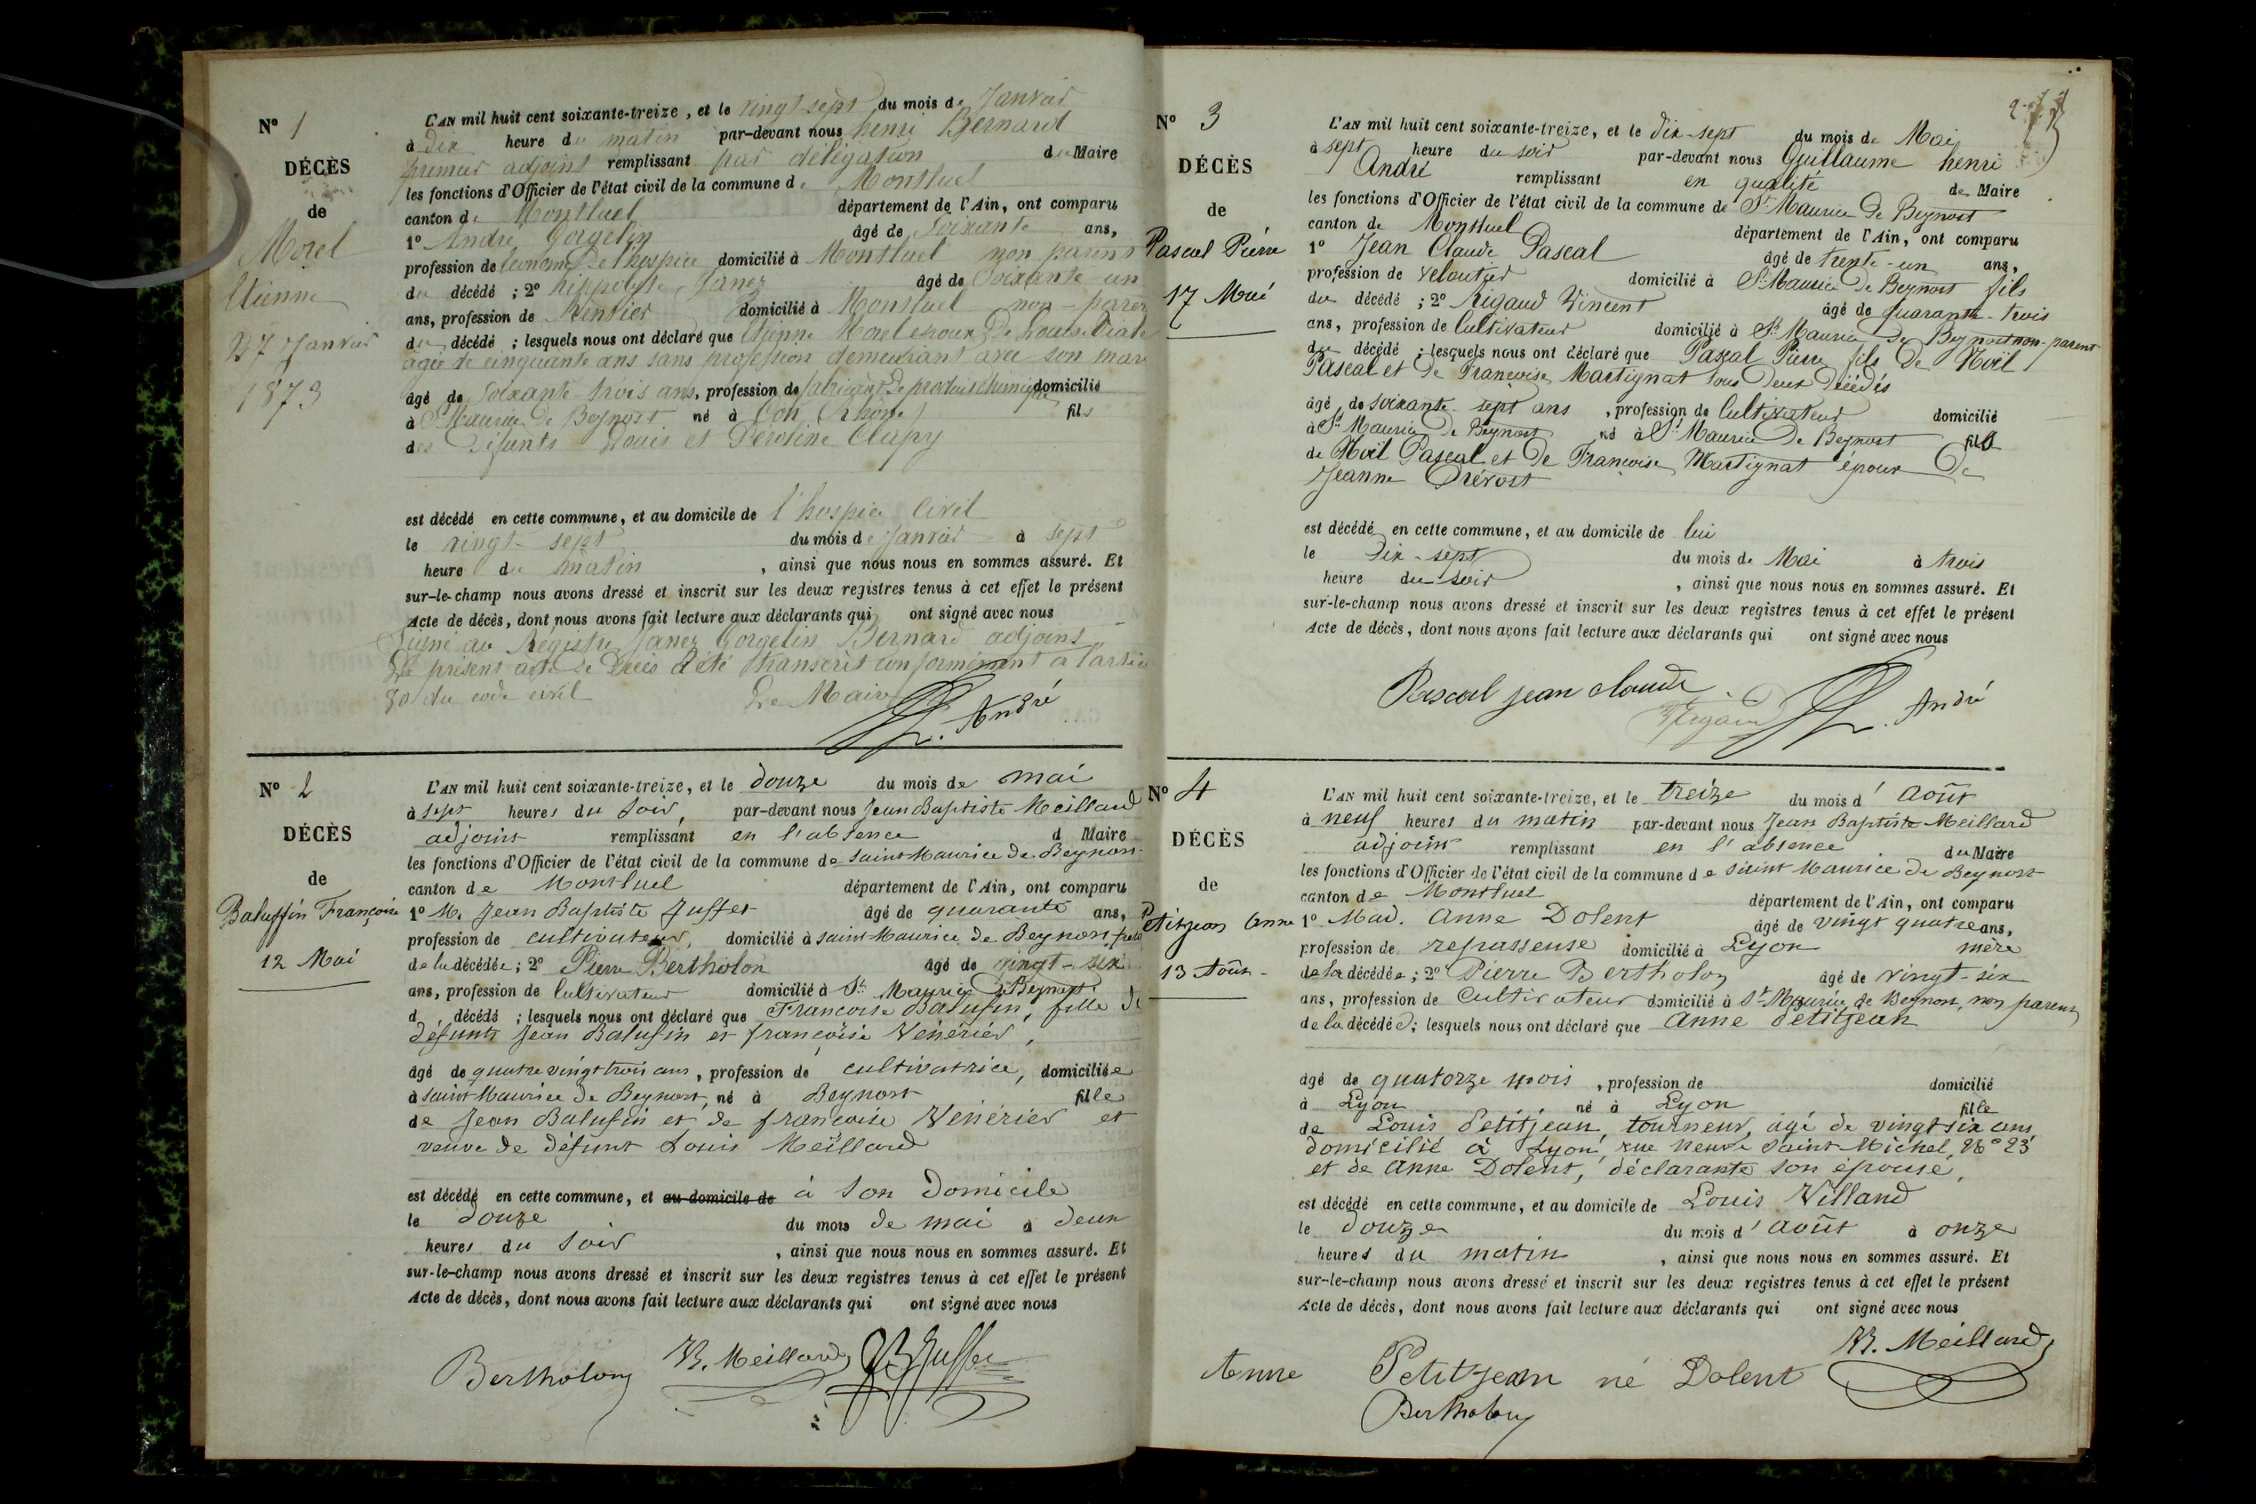 N° 1
DÉCÈS
de
Morel
Etienne
27 Janvier
1873
L'AN mil huit cent soixante-treize, et le vingt sept du mois de Janvier
à dix heure du matin par-devant nous henri Bernard
premier adjoint remplissant par délégation du Maire
les fonctions d'Officier de l'état civil de la commune de Montluel
canton de Montluel département de l'Ain, ont comparu
1° André Gorgelin âgé de soixante ans,
profession de économe de l'hospice domicilié à Montluel non parent
du décédé ; 2° hippolyte Janez âgé de soixante un
ans, profession de Rentier domicilié à Montluel non-parent
du décédé ; lesquels nous ont déclaré que Etienne Morel époux de Louise
agée de cinquante ans sans profession demeurant avec son mari
âgé de soixante trois ans, profession de fabricant de produits chimiques domicilié
à St Maurice de Beynost né à (Rhône) fils
des défunts Louis et Péroline Clapy
est décédé en cette commune, et au domicile de l'hospice Civil
le vingt-sept du mois de Janvier à sept
heure du matin , ainsi que nous nous en sommes assuré. Et
sur-le-champ nous avons dressé et inscrit sur les deux registres tenus à cet effet le présent
Acte de décès, dont nous avons fait lecture aux déclarants qui ont signé avec nous
Signé au Régistre Janez Gorgelin Bernard adjoint
Le présent acte de Décès a été transcrit conformément à l'article
80 du code civil Le Maire
André
N° 2
DÉCÈS
de
Baluffin Françoise
12 Mai
L'AN mil huit cent soixante-treize, et le douze du mois de mai
à sept heures du soir, par-devant nous Jean Baptiste Meilland
adjoint remplissant en l'absence d Maire
les fonctions d'Officier de l'état civil de la commune de saint Maurice de Beynost
canton de Montluel département de l'Ain, ont comparu
1° M. Jean Baptiste Juffet âgé de quarante ans,
profession de cultivateur, domicilié à saint Maurice de Beynost,
de la décédée ; 2° Pierre Bertholon âgé de vingt-six
ans, profession de Cultivateur domicilié à St Maurice de Beynost
d décédé ; lesquels nous ont déclaré que Françoise Balufin, fille de
défunts Jean Balufin et françoise Vénérier,
âgé de quatre vingt trois ans, profession de cultivatrice, domiciliée
à saint Maurice de Beynost, né à Beynost fille
de Jean Balufin et de françoise Vénérier et
veuve de défunt Louis Meilland
est décédé en cette commune, et au domicile de à son domicile
le douze du mois de mai à deux
heures du soir , ainsi que nous nous en sommes assuré. Et
sur-le-champ nous avons dressé et inscrit sur les deux registres tenus à cet effet le présent
Acte de décès, dont nous avons fait lecture aux déclarants qui ont signé avec nous
Bertholon B. Meilland JB Juffet
N° 3
DÉCÈS
de
Pascal Pierre
17 Mai
L'AN mil huit cent soixante-treize, et le dix-sept du mois de Mai
à sept heure du soir par-devant nous Guillaume henri
André remplissant en qualité de Maire
les fonctions d'Officier de l'état civil de la commune de St Maurice de Beynost
canton de Montluel département de l'Ain, ont comparu
1° Jean Claude Pascal âgé de trente-un ans,
profession de veloutier domicilié à St Maurice de Beynost fils
du décédé ; 2° Rigaud Vincent âgé de quarante-trois
ans, profession de Cultivateur domicilié à St Maurice de Beynost non-parent
du décédé ; lesquels nous ont déclaré que Pascal Pierre fils de Noël
Pascal et de Françoise Martignat tous deux décédés
âgé de soixante-sept ans , profession de Cultivateur domicilié
à St Maurice de Beynost né à St Maurice de Beynost fils
de Noël Pascal et de Françoise Martignat époux de
Jeanne Prévost
est décédé en cette commune, et au domicile de lui
le Dix-sept du mois de Mai à trois
heure du soir , ainsi que nous nous en sommes assuré. Et
sur-le-champ nous avons dressé et inscrit sur les deux registres tenus à cet effet le présent
Acte de décès, dont nous avons fait lecture aux déclarants qui ont signé avec nous
Pascal jean claude
Rigaud André
N° 4
DÉCÈS
de
Petitjean Anne
13 Août
L'AN mil huit cent soixante-treize, et le treize du mois d'Août
à neuf heures du matin par-devant nous Jean Baptiste Meilland
adjoint remplissant en l'absence du Maire
les fonctions d'Officier de l'état civil de la commune de saint Maurice de Beynost
canton de Montluel département de l'Ain, ont comparu
1° Mad. Anne Dolent âgé de vingt quatre ans,
profession de repasseuse domicilié à Lyon mère
de la décédée ; 2° Pierre Bertholon âgé de vingt-six
ans, profession de Cultivateur domicilié à St Maurice de Beynost, non parent
de la décédée ; lesquels nous ont déclaré que Anne Petitjean
âgé de quatorze mois , profession de domicilié
à Lyon né à Lyon fille
de Louis Petitjean, tourneur, âgé de vingt six ans
domicilié à Lyon, rue neuve saint Michel, N° 23
et de Anne Dolent, déclarante son épouse,
est décédé en cette commune, et au domicile de Louis Villand
le douze du mois d'août à onze
heures du matin , ainsi que nous nous en sommes assuré. Et
sur-le-champ nous avons dressé et inscrit sur les deux registres tenus à cet effet le présent
Acte de décès, dont nous avons fait lecture aux déclarants qui ont signé avec nous
B. Meilland
Anne Petitjean né Dolent
Bertholon